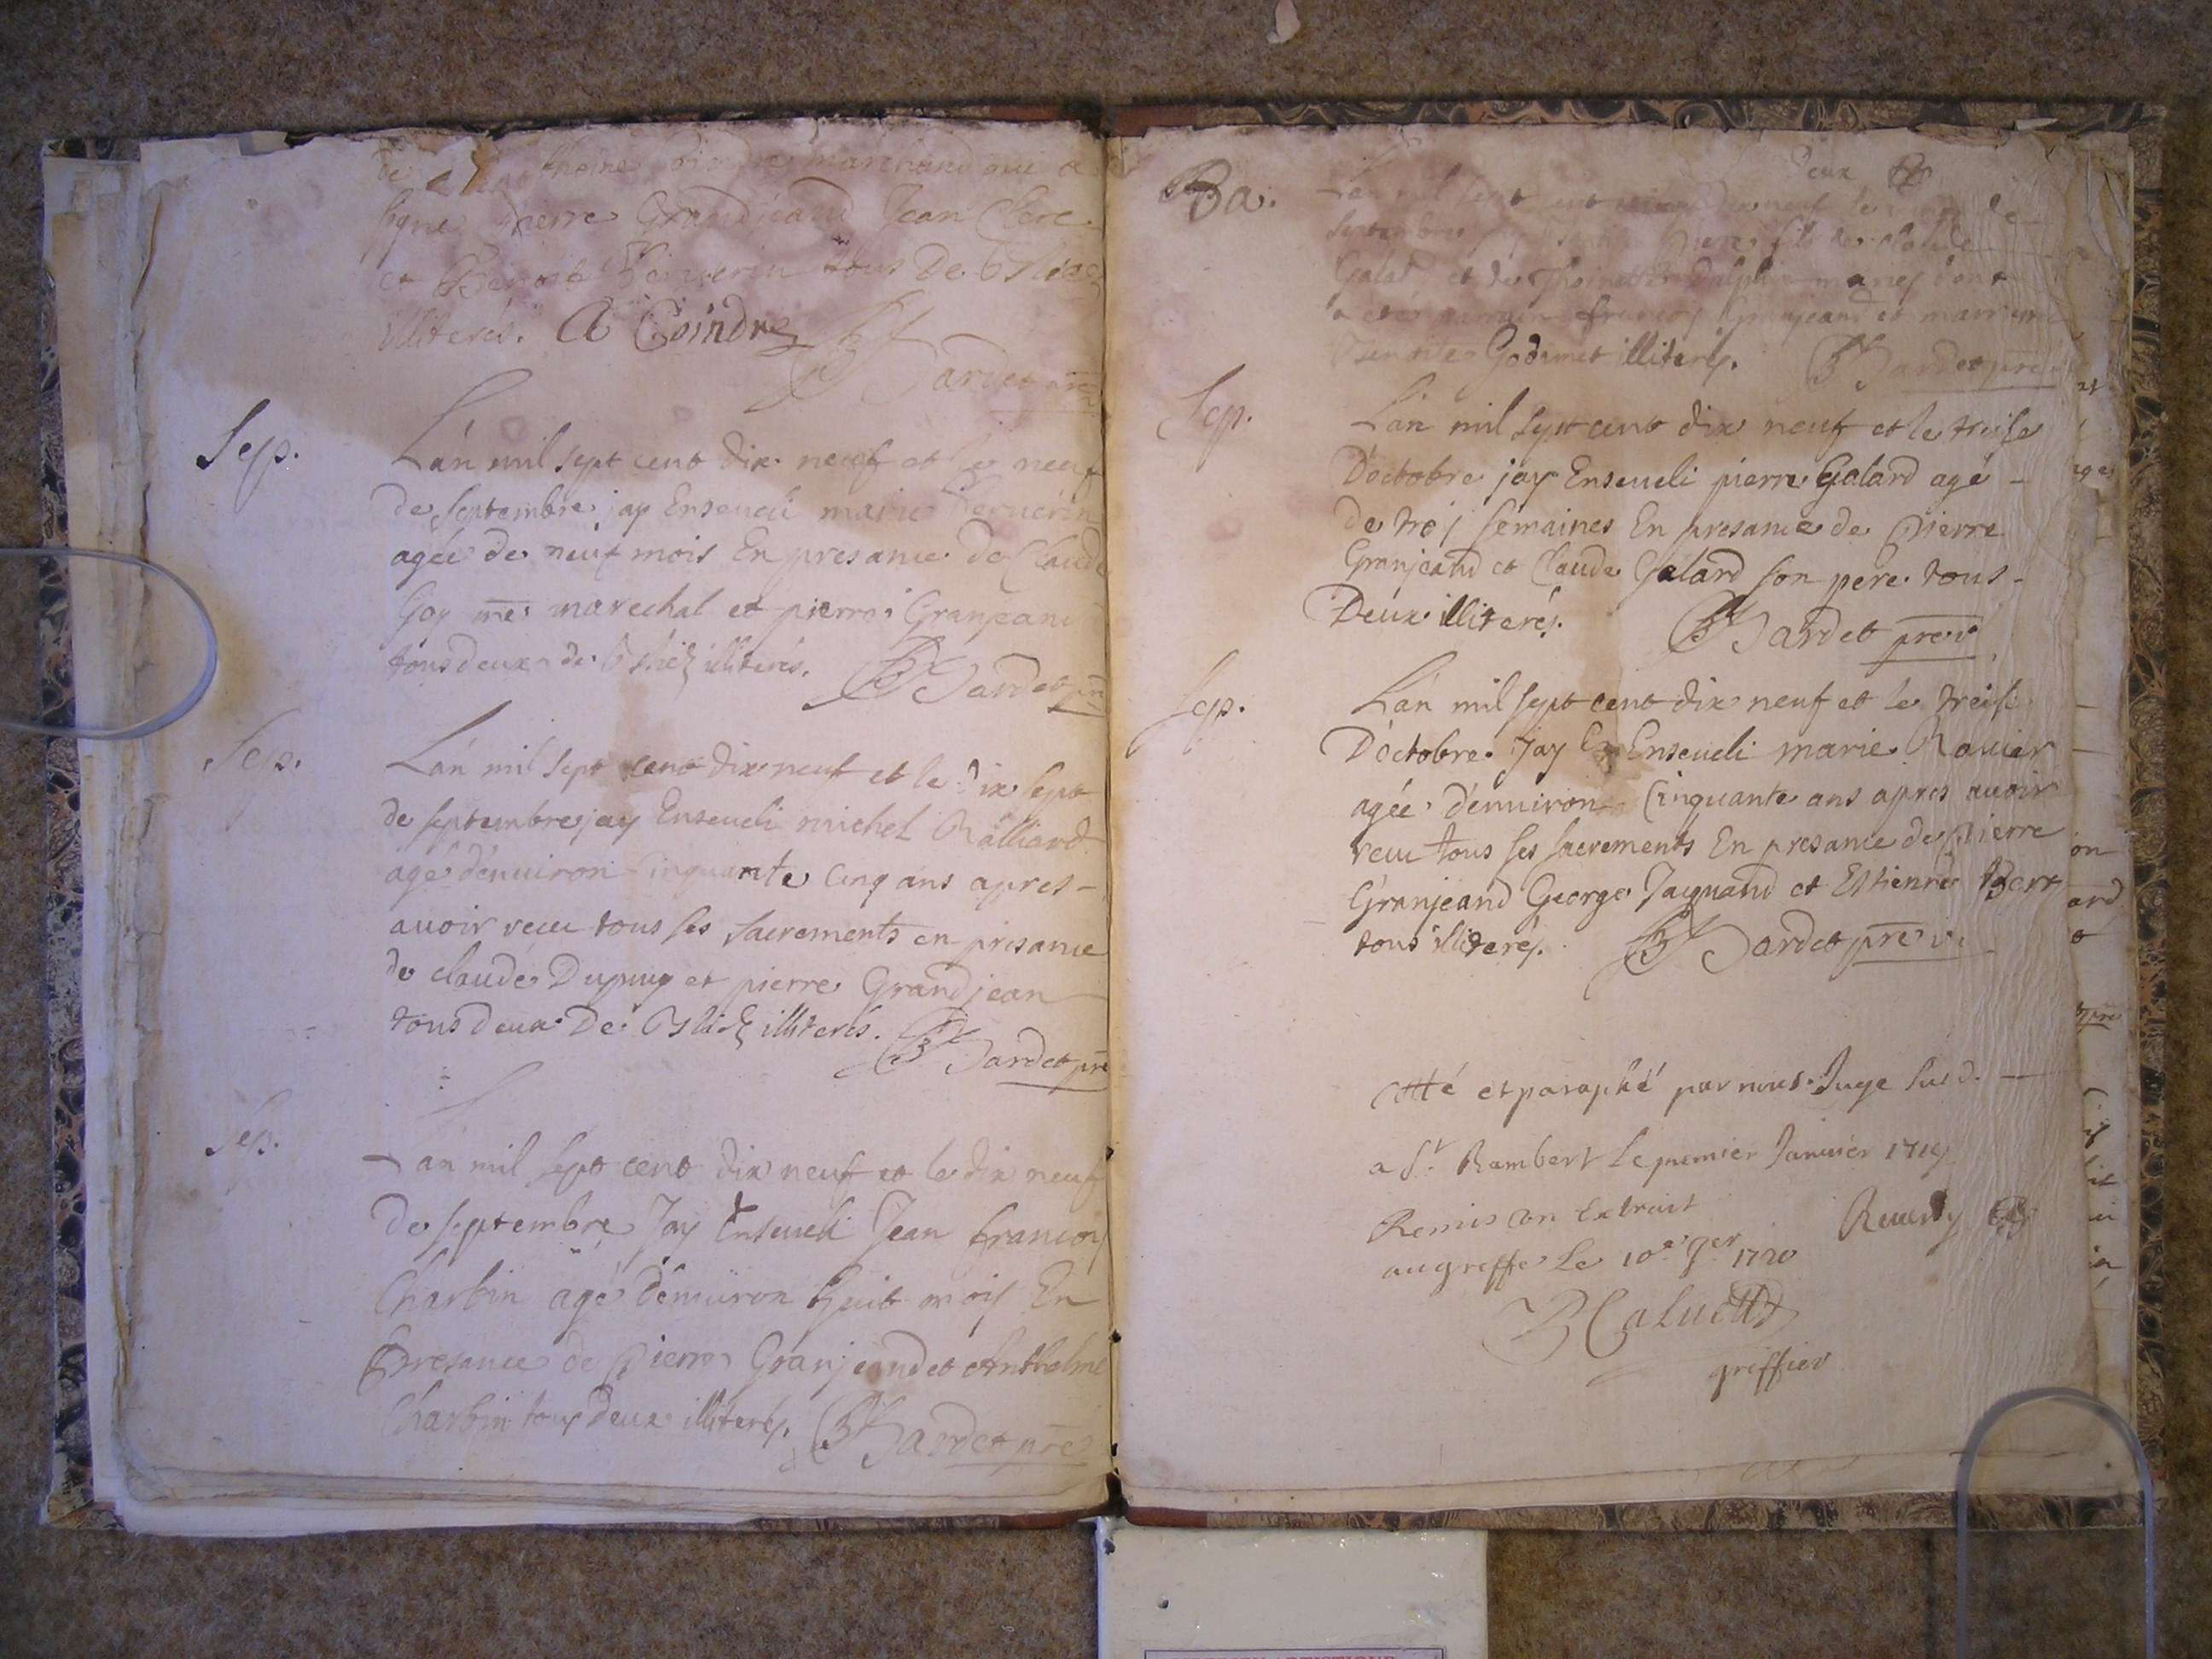 marchand qui a
signe pierre Grandjeand Jean Clerc
et Benoit tous De
illiterés. A Coindre
BJardet pre
Sep.
L'an mil sept cent dix neuf et le neuf
de septembre jay Enseueli marie
agée de neuf mois En presance de Claude
Goy me marechal et pierre Granjeand
tous deux de illiterés. BJardet pre
Sep.
L'an mil sept cent dix neuf et le dix sept
de septembre jay Enseueli michel Ralliard
agé d'enuiron cinquante cinq ans apres -
auoir receu tous ses sacrements en presance
de claude Dupuy et pierre Grandjean
tous deux De illiterés. BJardet pre
Sep.
Lan mil sept cent dix neuf et le dix neuf
de septembre Jay Enseueli Jean francois
Charbin agé d'enuiron huit mois En
presance de Pierre Granjeand et Anthelme
Charbin tous deux illiterés. BJardet pre
deux
Ba.
L'an mil sept cent dix neuf le de
septembre fils de claude
Galard et de mariés dont
a eté parrain francois Granjeand et marraine
Godemet illiterés. BJardet pre
Sep.
L'an mil sept cent dix neuf et le treise
D'octobre jay Enseueli pierre Galard agé -
de trois semaines En presance de Pierre
Granjeand et Claude Galard son pere tous -
Deux illiterés. BJardet pre v.
Sep.
L'an mil sept cent dix neuf et le treise
D'octobre Jay Enseueli marie Rauier
agée d'enuiron Cinquante ans apres auoir
receu tous ses sacrements En presance de Pierre
Granjeand George Jaquand et Estienne Bert
tous illiterés. BJardet pre v.
Cotté et paraphé par nous Juge susd. —
a St. Rambert le premier Januier 1719
Remis un Extrait
au greffe Le 10e. 9er. 1720
greffier